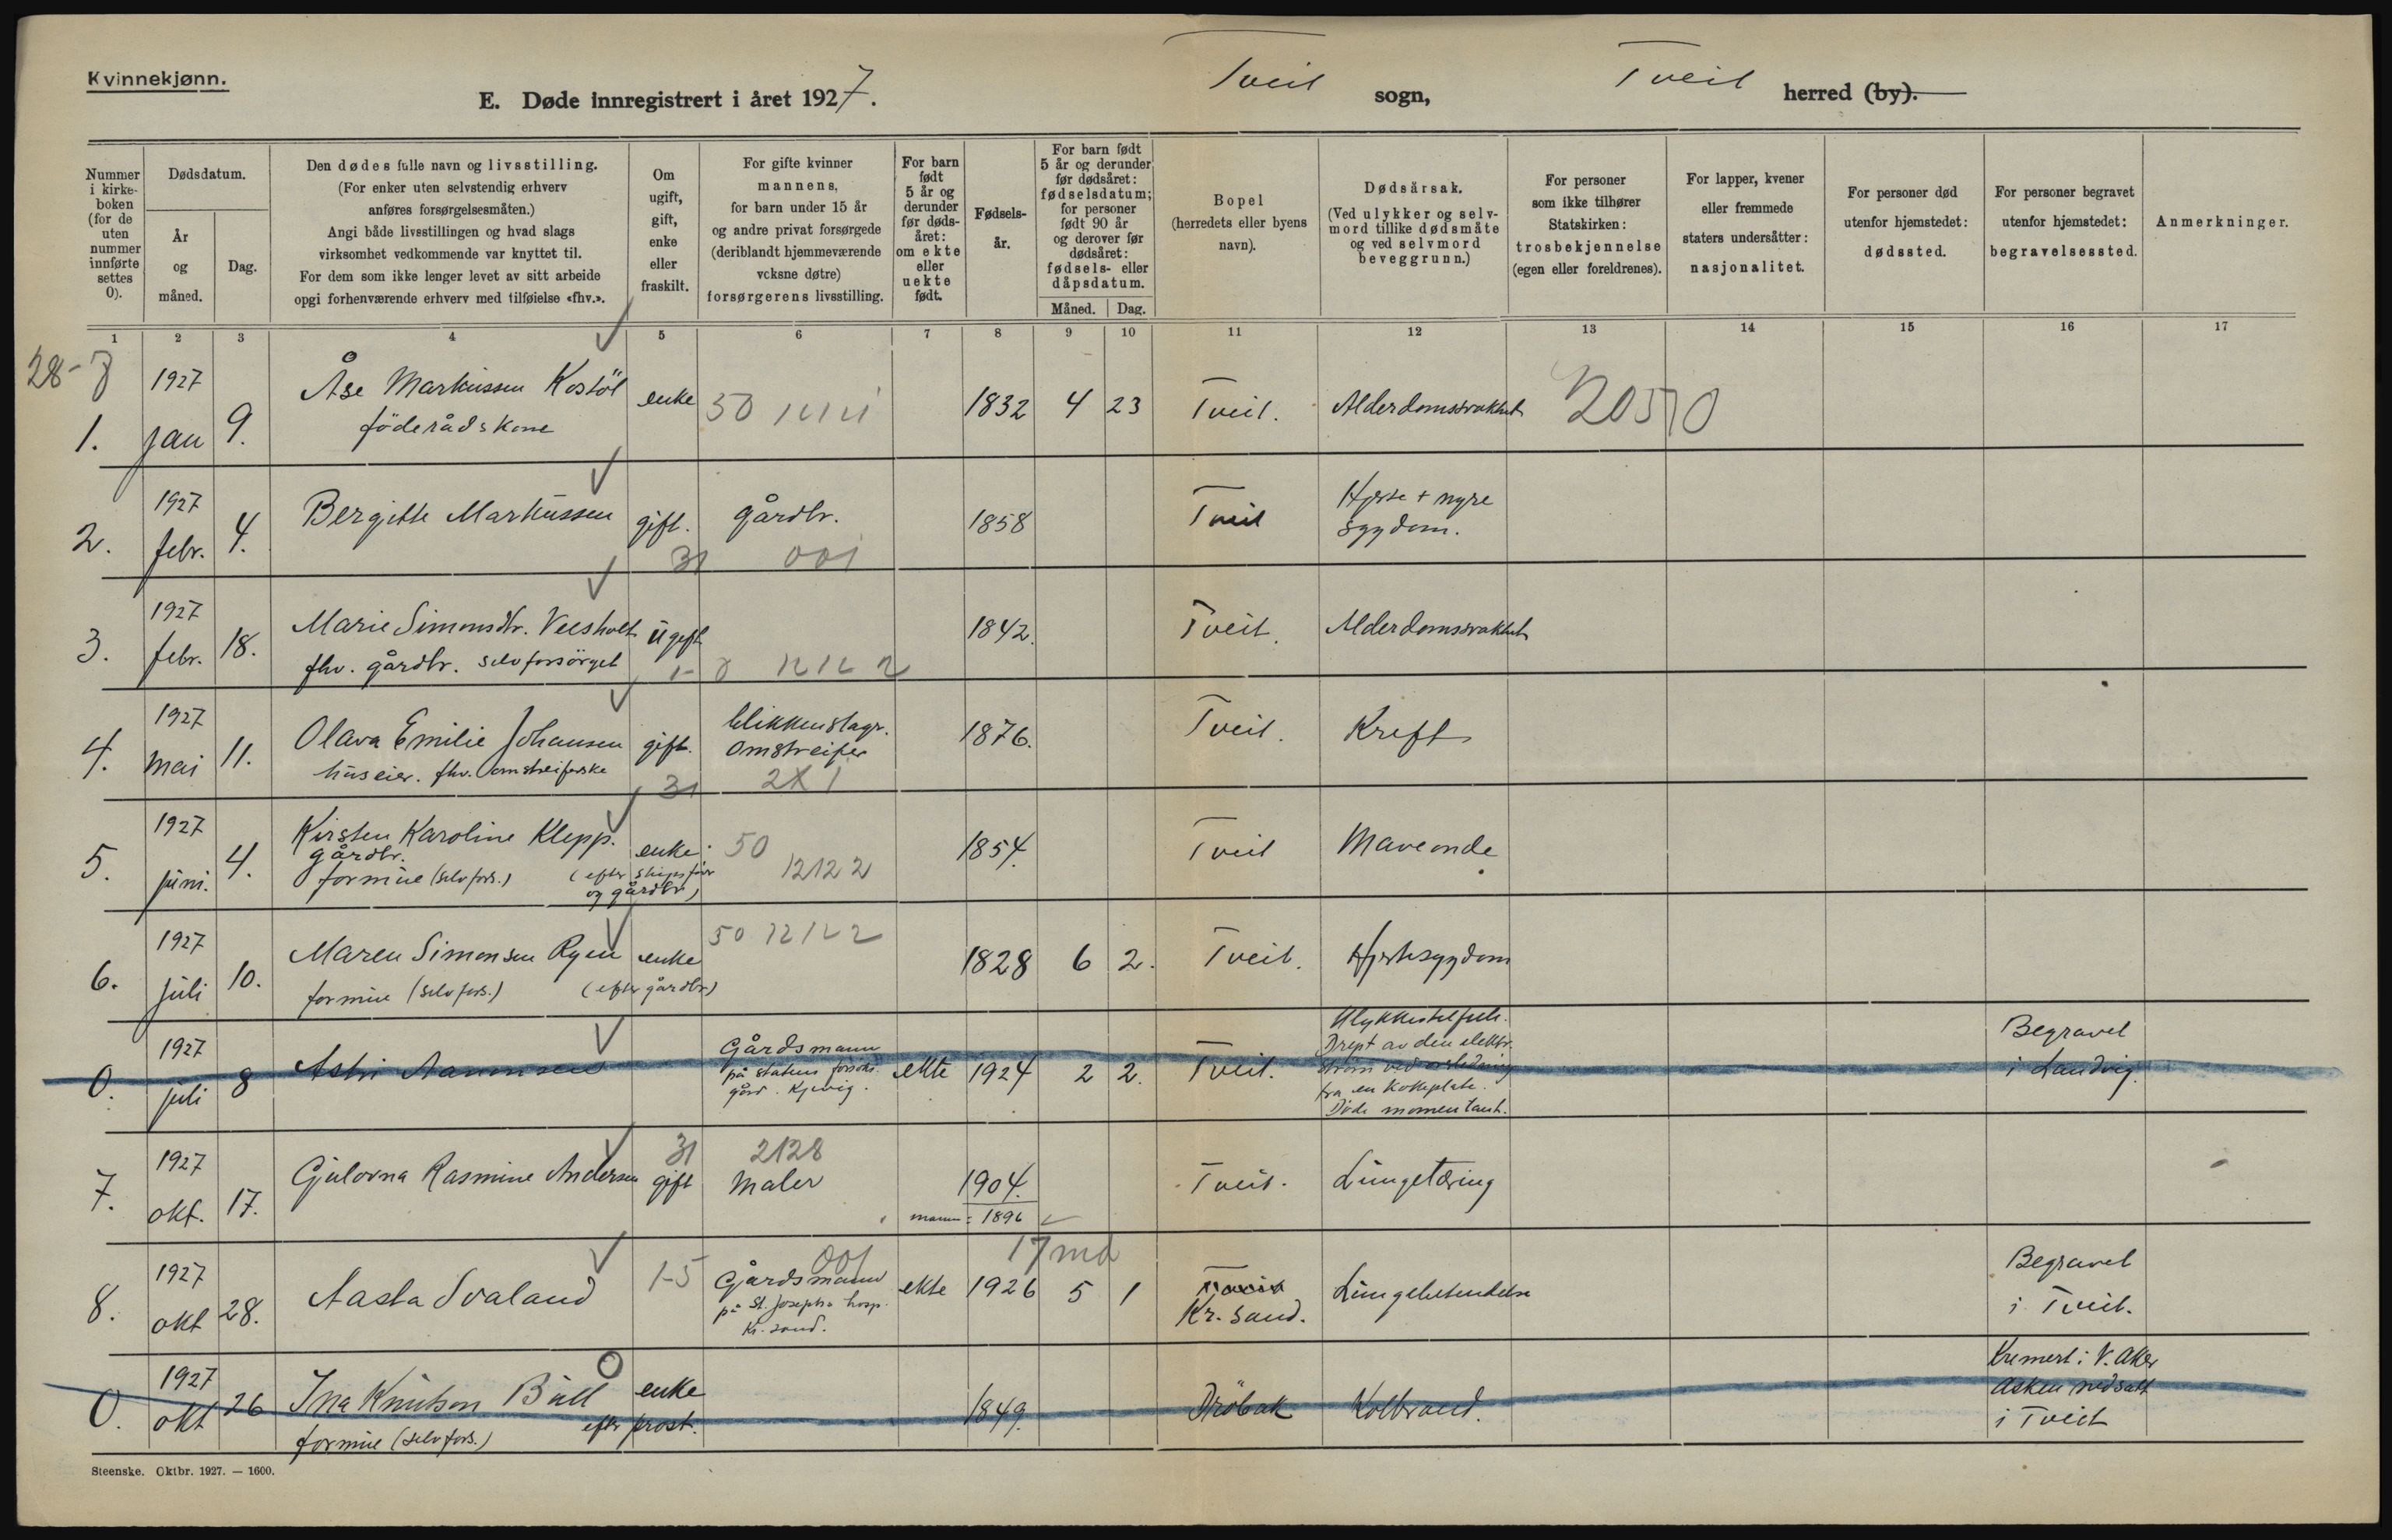 Kvinnekjønn.
E. Døde innregistrert i året 1927. Tveit sogn, Tveit herred (by).
Nummer i kirkeboken (for de uten nummer innførte settes 0).
Dødsdatum.
År og måned.
Dag.
Den dødes fulle navn og livsstilling.
(For enker uten selvstendig erhverv
anføres forsørgelsesmåten.)
Angi både livsstillingen og hvad slags
virksomhet vedkommende var knyttet til.
For dem som ikke lenger levet av sitt arbeide
opgi forhenværende erhverv med tilføielse «fhv.».
Om ugift, gift, enke eller fraskilt.
For gifte kvinner
mannens,
for barn under 15 år
og andre privat forsørgede
(deriblandt hjemmeværende
voksne døtre)
forsørgerens livsstilling.
For barn født 5 år og derunder før dødsåret: om ekte eller uekte født.
Fødselsår.
For barn født 5 år og derunder før dødsåret: fødselsdatum; for personer født 90 år og derover før dødsåret: fødsels- eller dåpsdatum.
Måned. Dag.
Bopel
(herredets eller byens navn).
Dødsårsak.
(Ved ulykker og selvmord tillike dødsmåte og ved selvmord beveggrunn.)
For personer som ikke tilhører Statskirken: trosbekjennelse (egen eller foreldrenes).
For lapper, kvener eller fremmede staters undersåtter: nasjonalitet.
For personer død utenfor hjemstedet: dødssted.
For personer begravet utenfor hjemstedet: begravelsessted.
Anmerkninger.
1 2 3 4 5 6 7 8 9 10 11 12 13 14 15 16 17
28-8
1927
1. jan 9. Åse Markussen Kostöl enke 50 1832 4 23 Tveit. Alderdomssvakhet 20570
föderådskone
1927
2. febr. 4. Bergitte Markussen gift. gårdbr. 1858 Tveit Hjerte + nyre
sygdom.
31 001
1927
3. febr. 18. Marie Simonsdtr. ugift 1842. Tveit. Alderdomssvakhet
fhv. gårdbr. selvforsörget 12122
1927
4. mai 11. Olava Emilie Johansen gift. blikkenslagr. 1876. Tveit. Kreft
huseier. fhv. omstreiferske omstreifer
31 2X1
1927
5. juni. 4. Kirsten Karoline Klepp. enke 50 1854. Tveit Maveonde
gårdbr.
formue (selvfors.) (efter skipsförer 12122
og gårdbr)
1927
6. juli 10. Maren Simonsen Ryen enke 50 12122 1828 6 2. Tveit. Hjertesygdom
formue (selvfors.) (efter gårdbr)
1927
0. juli 8 Astri Aanonsen Gårdsmann ekte 1924 2 2. Tveit. Ulykkestilfelle.
på statens forsöks
gård. Kjevig.
Drept av den elektr.
ström ved avledning
fra en kokeplate.
Döde momentant.
Begravet
i Landvig.
1927
7. okt. 17. Gjulovna Rasmine Andersen gift Maler 1904. Tveit. Lungetæring
31 2128
mann: 1896
1927
8. okt 28. Aasta Svaland 1-5 Gårdsmann ekte 1926 5 1 Tveit Lungebetendelse
001 17 md
på St. Josephs hosp.
Kr. sand.
Kr. Sand.
Begravet
i Tveit.
1927
0. okt 26 Ina Knutson Bull enke 1849. Dröbak Kolbrand.
formue (selvfors.) efter prost.
Kremert i V. Aker
Asken nedsatt
i Tveit
Steenske. Oktbr. 1927. — 1600.